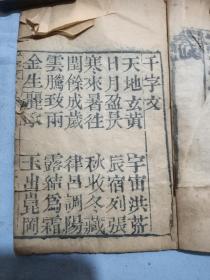 千字文
天地玄黃 宇宙洪荒
日月盈昃 辰宿列張
寒來暑往 秋收冬藏
閏餘成歲 律呂調陽
雲騰致雨 露結為霜
金生麗水 玉出崑岡